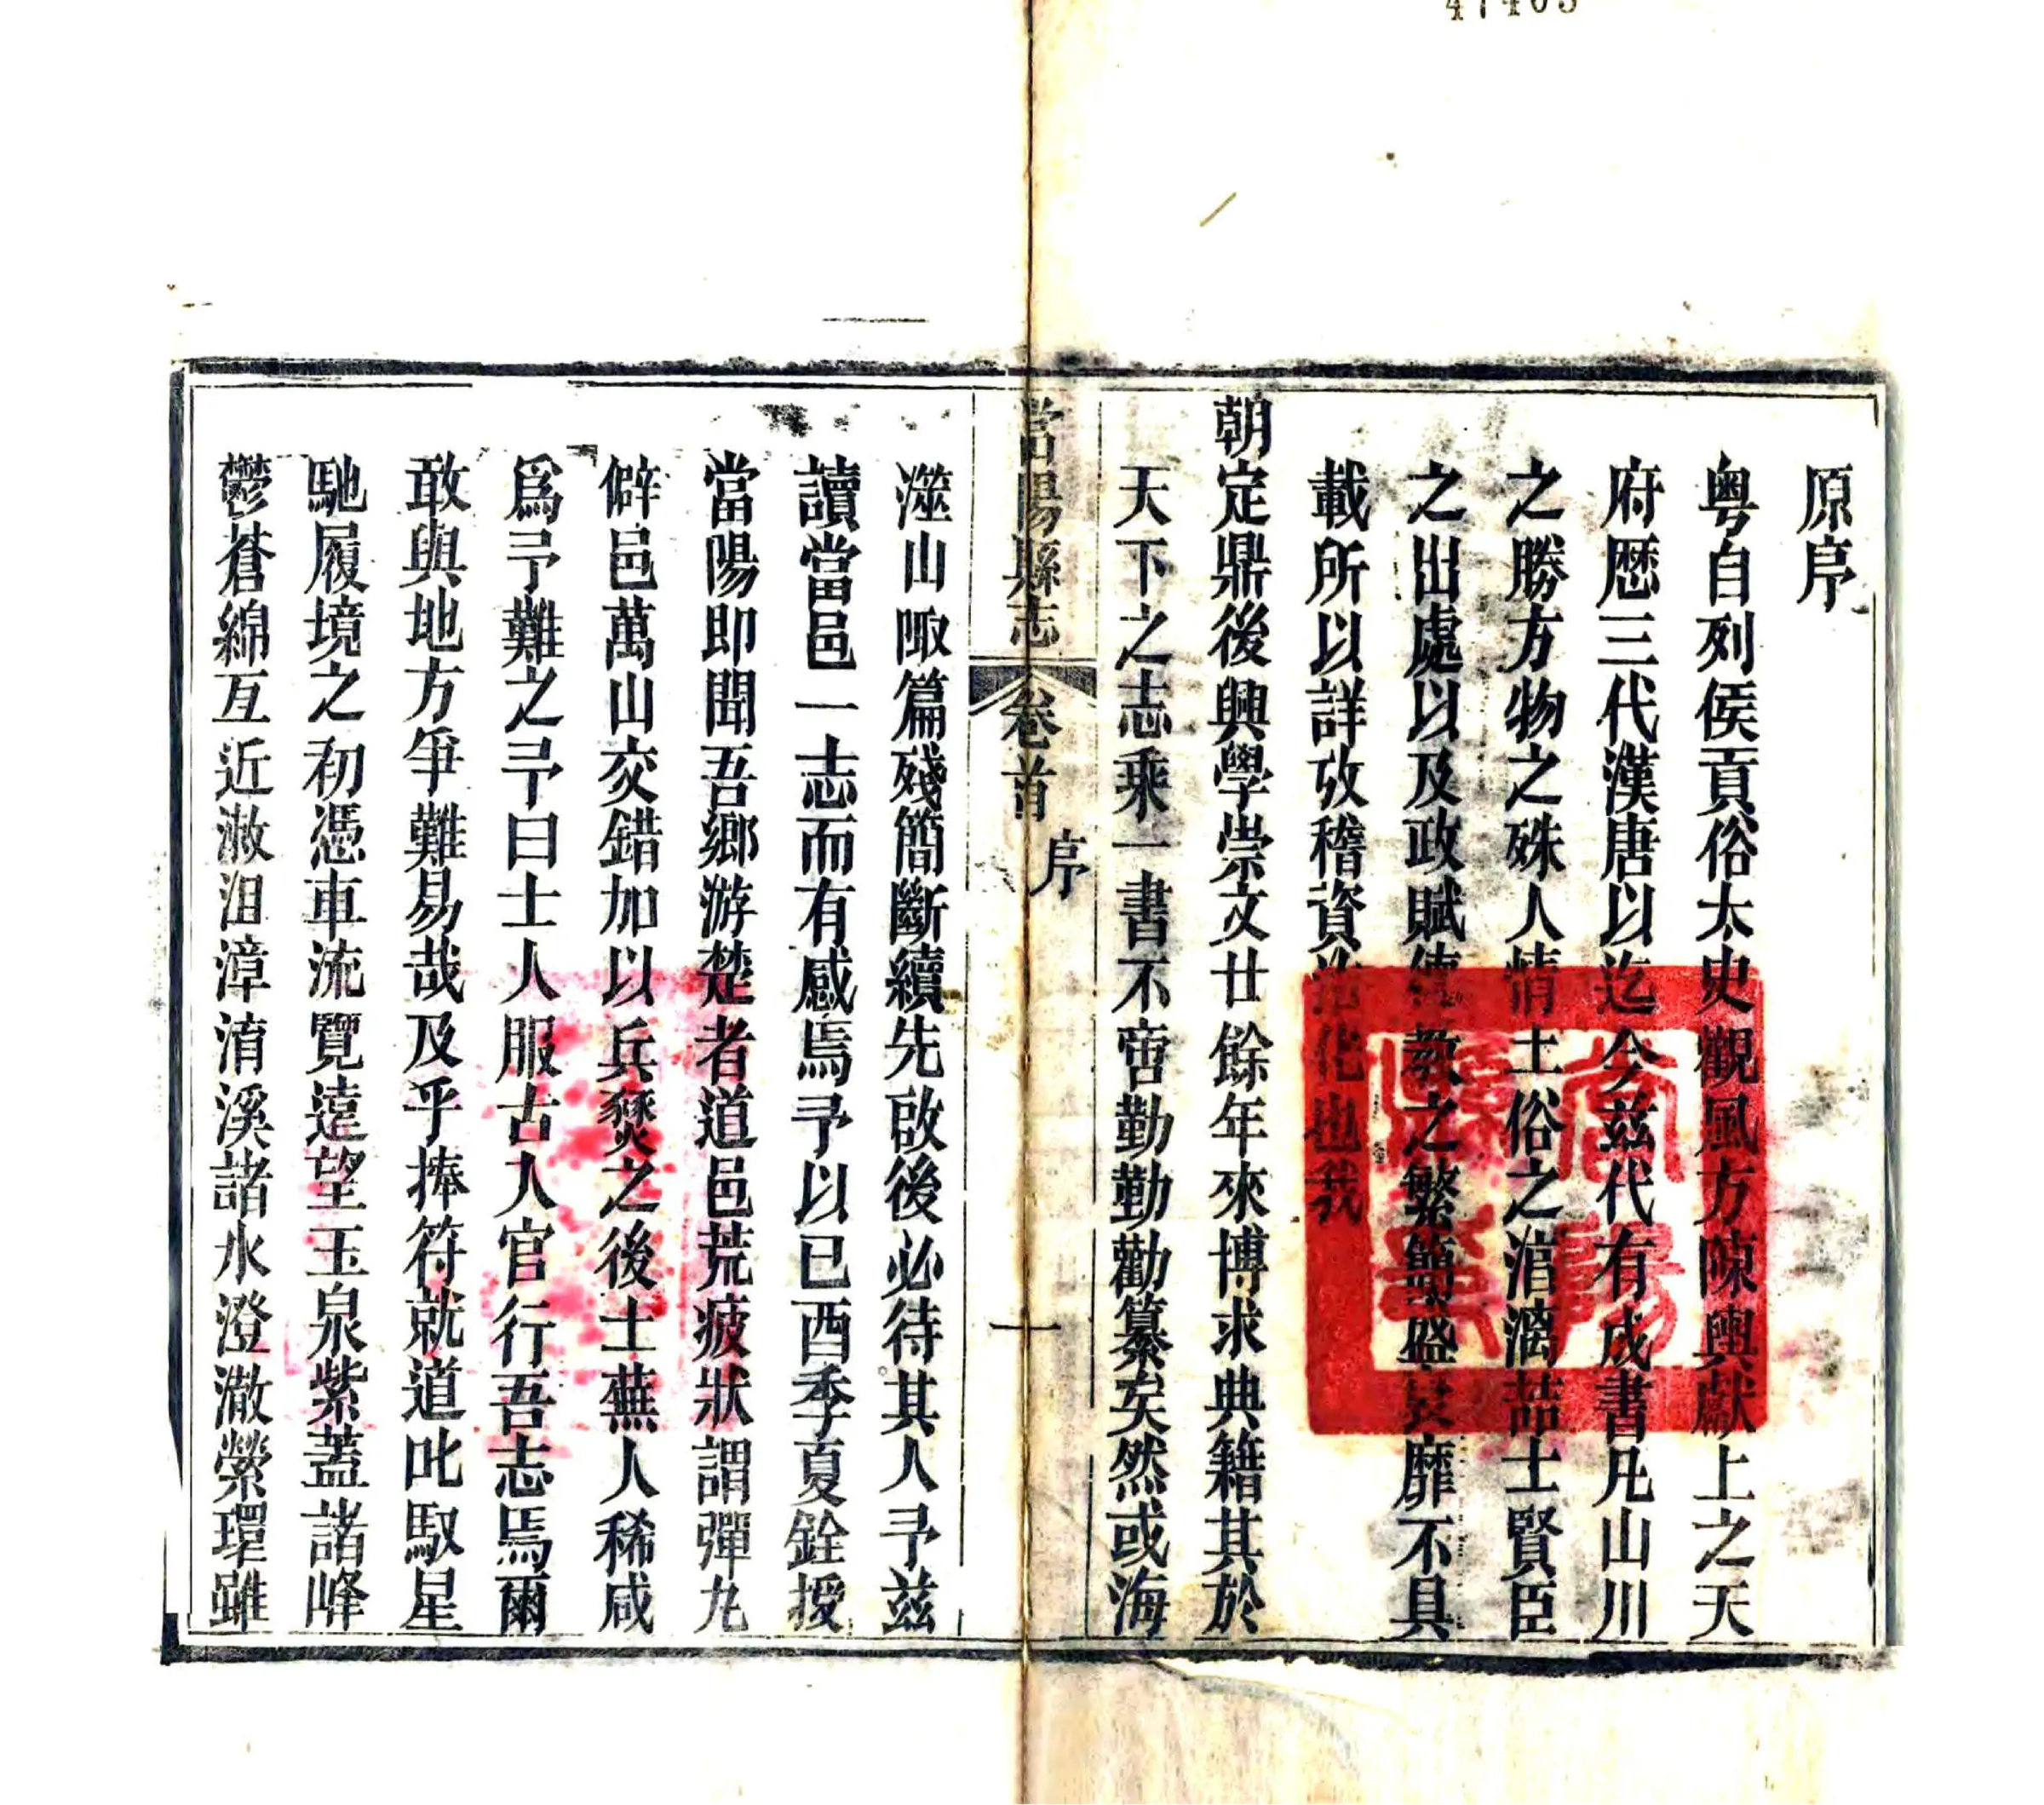 原序
粤自列侯貢俗太史觀風方陳輿獻上之天
府歷三代漢唐以迄今茲代有成書凡山川
之勝方物之殊人情土俗之淳漓喆士賢臣
之出處以及政賦傳教之繁簡盛衰靡不具
載所以詳攷稽資治化也我
朝定鼎後興學崇文廿餘年來博求典籍其於
天下之志乘一書不啻勤勤勸纂矣然或海
當陽縣志 卷首 序 一
澨山陬篇殘簡斷續先啟後必待其人予茲
讀當邑一志而有感焉予以已酉季夏銓授
當陽即聞吾鄉游楚者道邑荒疲狀謂彈丸
僻邑萬山交錯加以兵燹之後土蕪人稀咸
爲予難之予曰士人服古入官行吾志焉爾
敢與地方爭難易哉及乎捧符就道叱馭星
馳履境之初憑車流覽遠望玉泉紫蓋諸峰
鬱蒼綿亙近漵沮漳淯溪諸水澄澈縈環雖
當陽縣印
47403